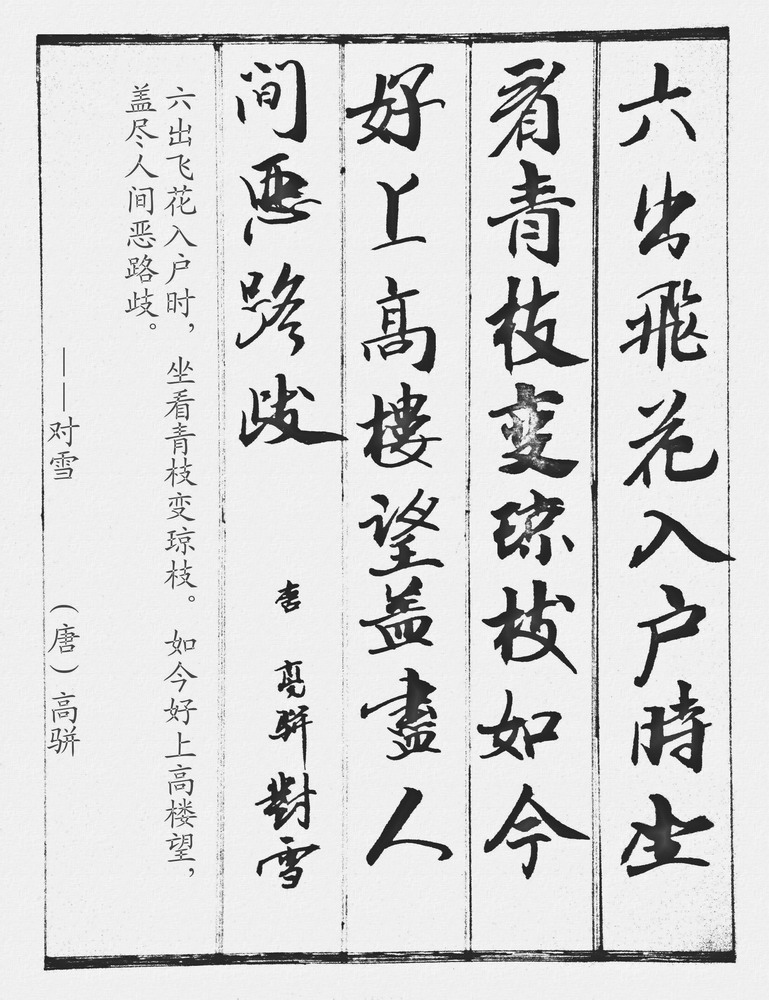 六出飛花入户時坐
看青枝变琼枝如今
好上高樓望盖盡人
间恶路歧
唐 高骈對雪
六出飞花入户时，坐看青枝变琼枝。如今好上高楼望，
盖尽人间恶路歧。
——对雪 （唐）高骈